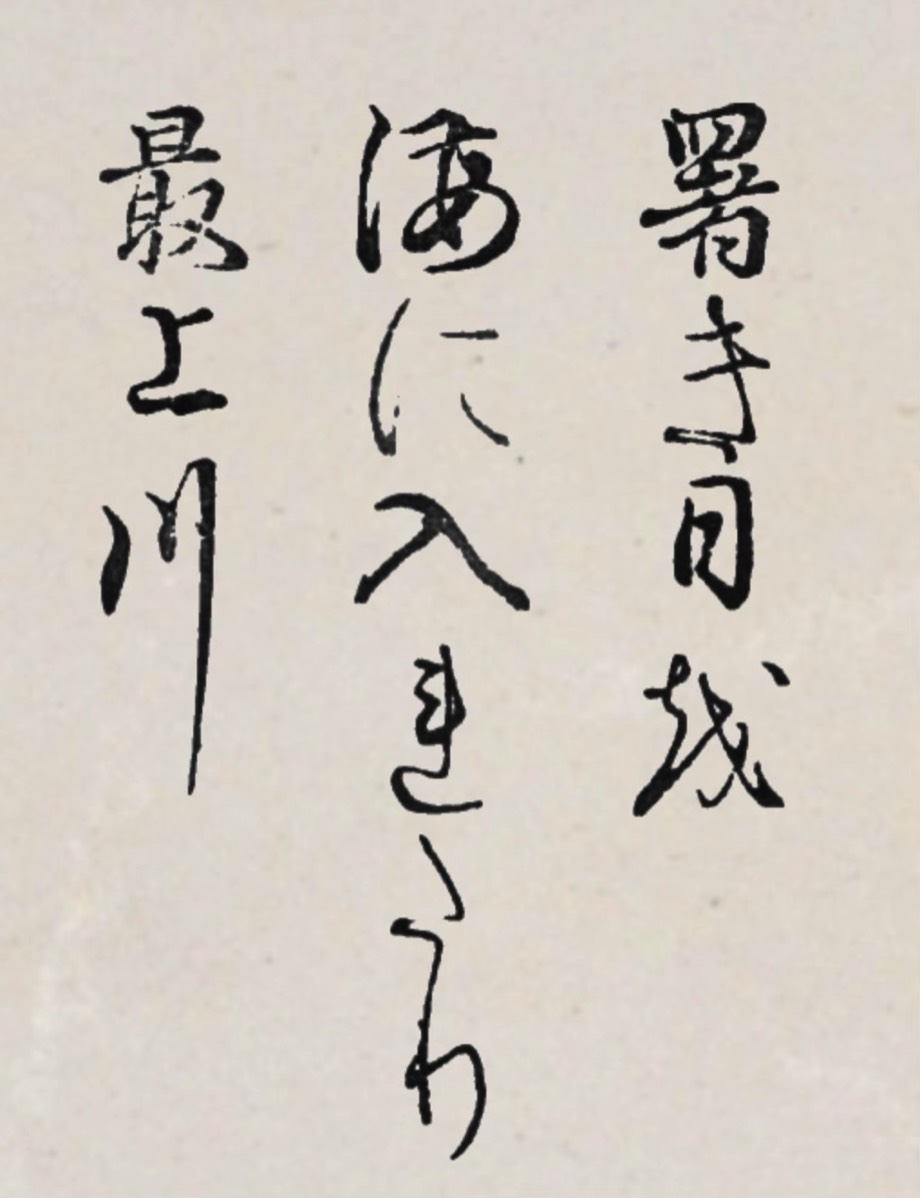 暑き日越
海に入れたり
最上川